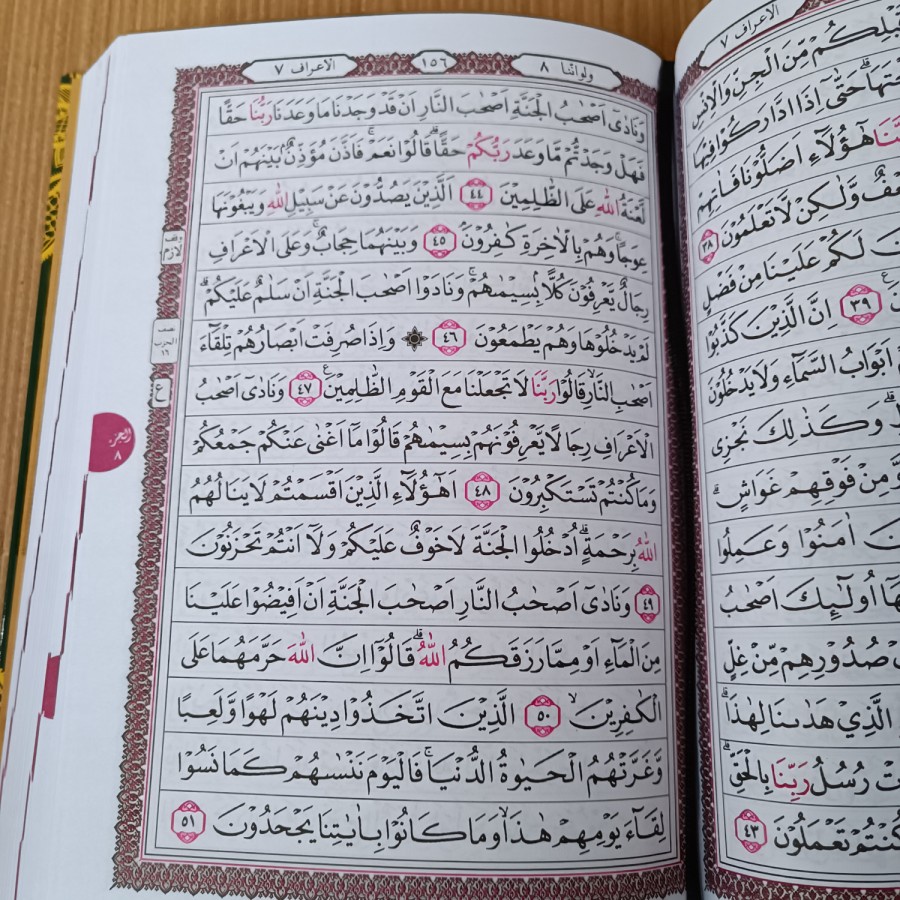 الاعراف ٧
١٥٦
ولواننا ٨
وَنَادٰٓى اَصْحٰبُ الْجَنَّةِ اَصْحٰبَ النَّارِ اَنْ قَدْ وَجَدْنَا مَا وَعَدَنَا رَبُّنَا حَقًّا
فَهَلْ وَجَدْتُّمْ مَّا وَعَدَ رَبُّكُمْ حَقًّاۗ قَالُوْا نَعَمْۚ فَاَذَّنَ مُؤَذِّنٌۢ بَيْنَهُمْ اَنْ
لَّعْنَةُ اللّٰهِ عَلَى الظّٰلِمِيْنَ ٤٤ الَّذِيْنَ يَصُدُّوْنَ عَنْ سَبِيْلِ اللّٰهِ وَيَبْغُوْنَهَا
عِوَجًاۚ وَهُمْ بِالْاٰخِرَةِ كٰفِرُوْنَۘ ٤٥ وَبَيْنَهُمَا حِجَابٌۚ وَعَلَى الْاَعْرَافِ
رِجَالٌ يَّعْرِفُوْنَ كُلًّاۢ بِسِيْمٰىهُمْۚ وَنَادَوْا اَصْحٰبَ الْجَنَّةِ اَنْ سَلٰمٌ عَلَيْكُمْۗ
لَمْ يَدْخُلُوْهَا وَهُمْ يَطْمَعُوْنَ ٤٦ ۞ وَاِذَا صُرِفَتْ اَبْصَارُهُمْ تِلْقَاۤءَ
اَصْحٰبِ النَّارِۙ قَالُوْا رَبَّنَا لَا تَجْعَلْنَا مَعَ الْقَوْمِ الظّٰلِمِيْنَ ࣖ ٤٧ وَنَادٰٓى اَصْحٰبُ
الْاَعْرَافِ رِجَالًا يَّعْرِفُوْنَهُمْ بِسِيْمٰىهُمْ قَالُوْا مَآ اَغْنٰى عَنْكُمْ جَمْعُكُمْ
وَمَا كُنْتُمْ تَسْتَكْبِرُوْنَ ٤٨ اَهٰٓؤُلَاۤءِ الَّذِيْنَ اَقْسَمْتُمْ لَا يَنَالُهُمُ
اللّٰهُ بِرَحْمَةٍۗ اُدْخُلُوا الْجَنَّةَ لَا خَوْفٌ عَلَيْكُمْ وَلَآ اَنْتُمْ تَحْزَنُوْنَ
٤٩ وَنَادٰٓى اَصْحٰبُ النَّارِ اَصْحٰبَ الْجَنَّةِ اَنْ اَفِيْضُوْا عَلَيْنَا
مِنَ الْمَاۤءِ اَوْ مِمَّا رَزَقَكُمُ اللّٰهُۗ قَالُوْٓا اِنَّ اللّٰهَ حَرَّمَهُمَا عَلَى
الْكٰفِرِيْنَۙ ٥٠ الَّذِيْنَ اتَّخَذُوْا دِيْنَهُمْ لَهْوًا وَّلَعِبًا
وَّغَرَّتْهُمُ الْحَيٰوةُ الدُّنْيَاۚ فَالْيَوْمَ نَنْسٰىهُمْ كَمَا نَسُوْا
لِقَاۤءَ يَوْمِهِمْ هٰذَاۙ وَمَا كَانُوْا بِاٰيٰتِنَا يَجْحَدُوْنَ ٥١
وقف
لازم
نصف
الحزب
١٦
ع
الجزء
٨
الاعراف ٧
قَبْلِكُمْ مِّنَ الْجِنِّ وَالْاِنْسِ
حَتّٰٓى اِذَا ادَّارَكُوْا فِيْهَا
هٰٓؤُلَاۤءِ اَضَلُّوْنَا فَاٰتِهِمْ
وَّلٰكِنْ لَّا تَعْلَمُوْنَ ٣٨
لَكُمْ عَلَيْنَا مِنْ فَضْلٍ
٣٩ اِنَّ الَّذِيْنَ كَذَّبُوْا
اَبْوَابُ السَّمَاۤءِ وَلَا يَدْخُلُوْنَ
وَكَذٰلِكَ نَجْزِى
وَّمِنْ فَوْقِهِمْ غَوَاشٍۗ
اٰمَنُوْا وَعَمِلُوا
اُولٰۤىِٕكَ اَصْحٰبُ
صُدُوْرِهِمْ مِّنْ غِلٍّ
الَّذِيْ هَدٰىنَا لِهٰذَاۗ
رُسُلُ رَبِّنَا بِالْحَقِّۗ
كُنْتُمْ تَعْمَلُوْنَ ٤٣